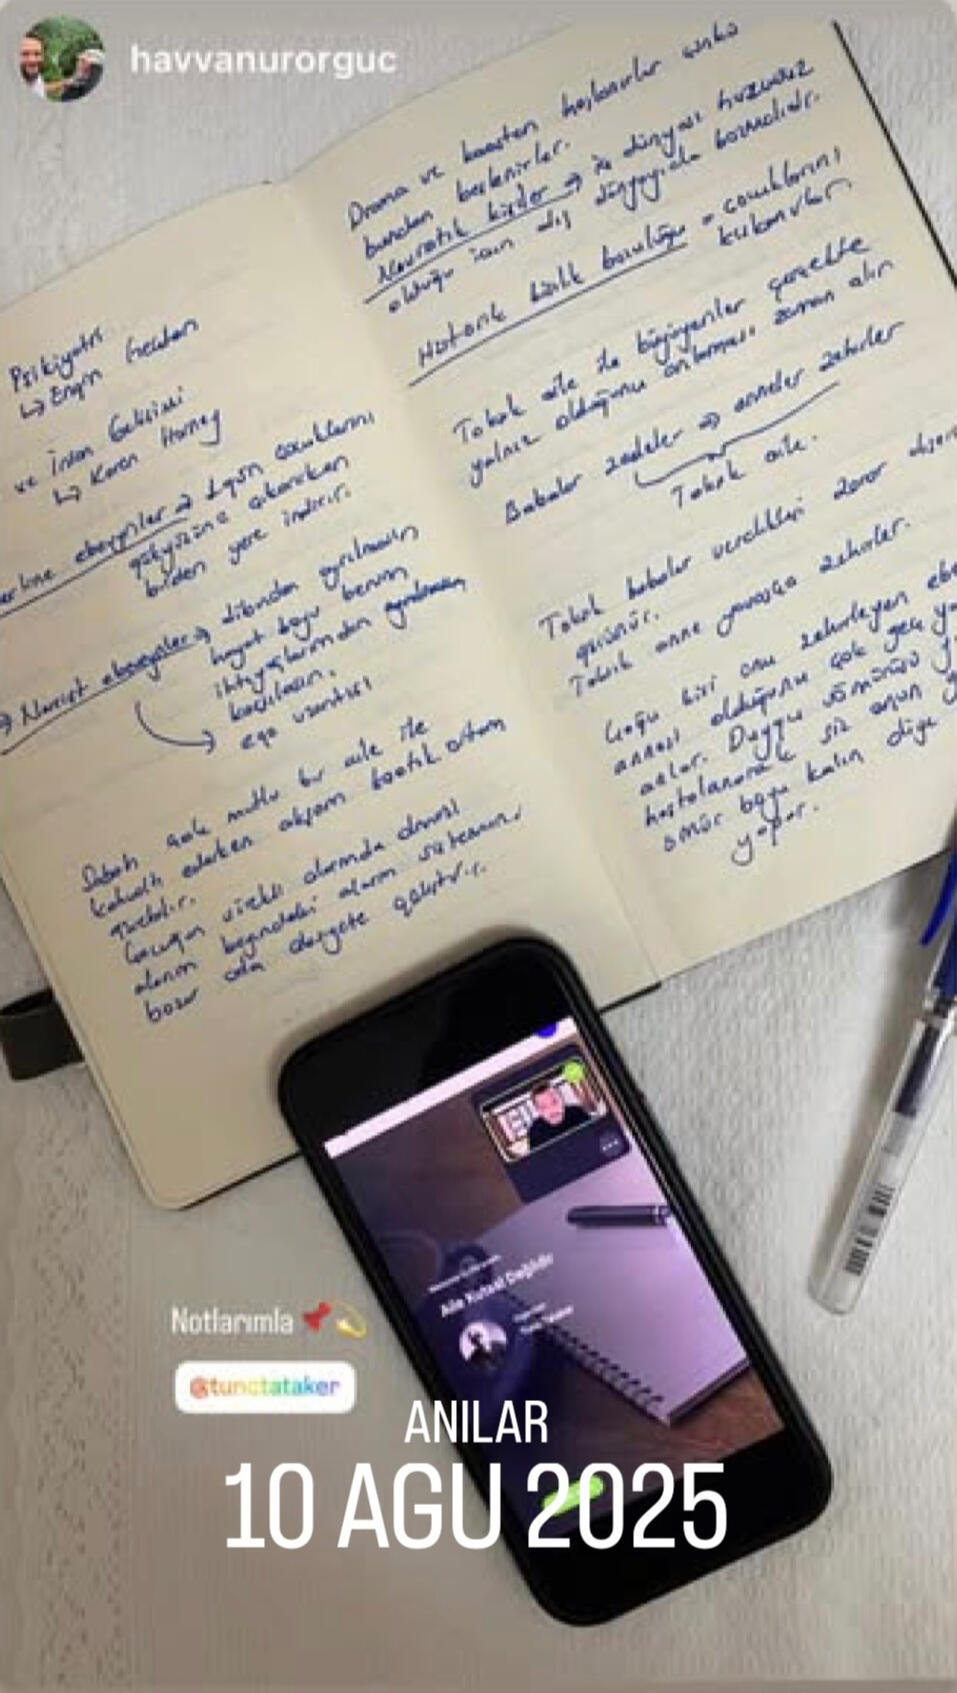 havvanurorguc
Psikiyatri
↳ Engin Geçtan
ve İnsan Gelişimi
↳ Karen Horney
erline ebeveynler → 1 gün çocuklarını
gökyüzüne çıkarırken
birden yere indirir.
→ Narsist ebeveynler → dibimden ayrılmasın
hayat boyu benim
ihtiyaçlarımdan
karşılasın.
ego uzantısı
Sabah çok mutlu bir aile ile
kahvaltı ederken akşam kaotik ortam
Çocuğun sürekli alarmda
alarm beyindeki alarm sistemini
bozar
Drama ve kaostan hoşlanırlar çünkü
bundan beslenirler.
Nevrotik kişiler → iç dünyası huzursuz
olduğu için dış dünyayıda bozmalıdır.
kişilik bozukluğu = çocuklarını
kıskanırlar.
Toksik aile ile büyüyenler genellikle
yalnız olduğunu anlaması zaman alır
Babalar zedeler → anneler zehirler
Toksik aile.
Toksik babalar verdikleri zarar
görünür.
Toksik anne yavaşça zehirler.
Çoğu kişi onu zehirleyen
annesi olduğunu çok geç
anlar. Duygu sömürüsü
hastalanarak siz onun
ömür boyu kalın diye
yapar.
Aile Kutsal Değildir
Notlarımla 📌💫
@tunctataker
ANILAR
10 AGU 2025